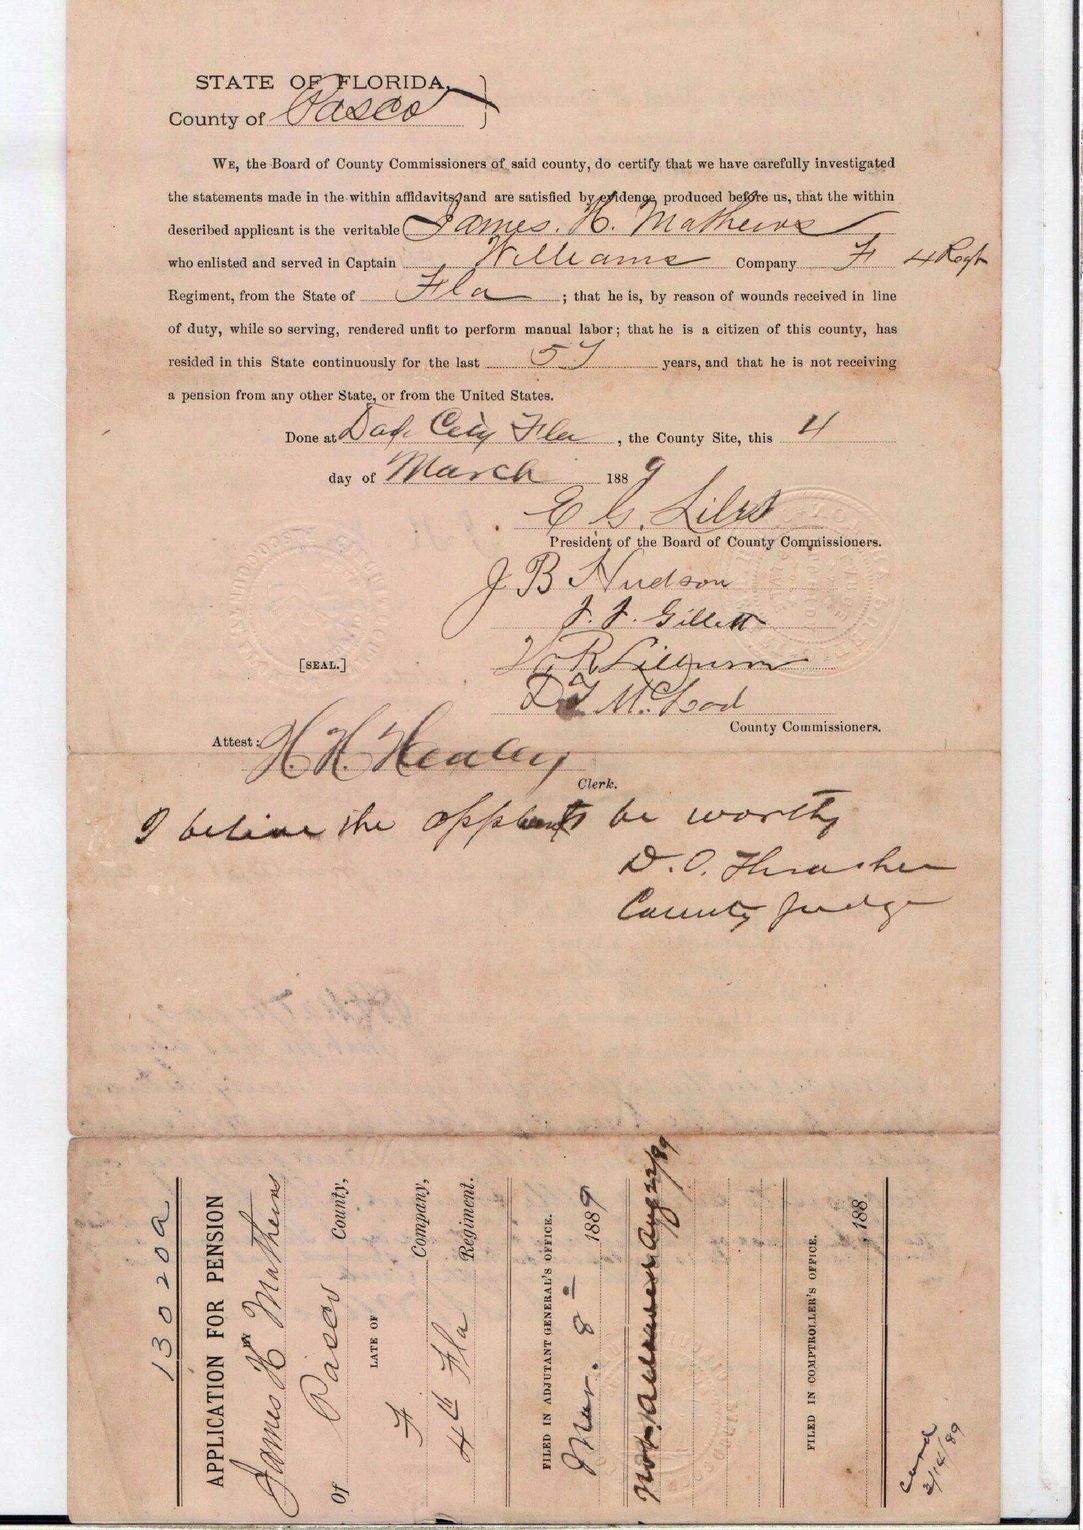 STATE OF FLORIDA,
County of Pasco
WE, the Board of County Commissioners of said county, do certify that we have carefully investigated
the statements made in the within affidavits, and are satisfied by evidence produced before us, that the within
described applicant is the veritable James. H. Mathews
who enlisted and served in Captain Williams Company F 4 Regt
Regiment, from the State of Fla ; that he is, by reason of wounds received in line
of duty, while so serving, rendered unfit to perform manual labor; that he is a citizen of this county, has
resided in this State continuously for the last 57 years, and that he is not receiving
a pension from any other State, or from the United States.
Done at Dade City Fla , the County Site, this 4
day of March 1889
E G. Liles
President of the Board of County Commissioners.
J B Hudson
J. J. Gillett
[SEAL.]
D McLeod
County Commissioners.
Attest: H. H. Henley
Clerk.
I believe the applicant be worthy
D. O. Thrasher
County Judge
13020a
APPLICATION FOR PENSION
BY
James H Mathews
Of Pasco County,
LATE OF
F Company,
4th Fla Regiment.
FILED IN ADJUTANT GENERAL'S OFFICE.
Mar. 8 1889
Not Allowed Aug 22/89
FILED IN COMPTROLLER'S OFFICE.
188
3/14/89